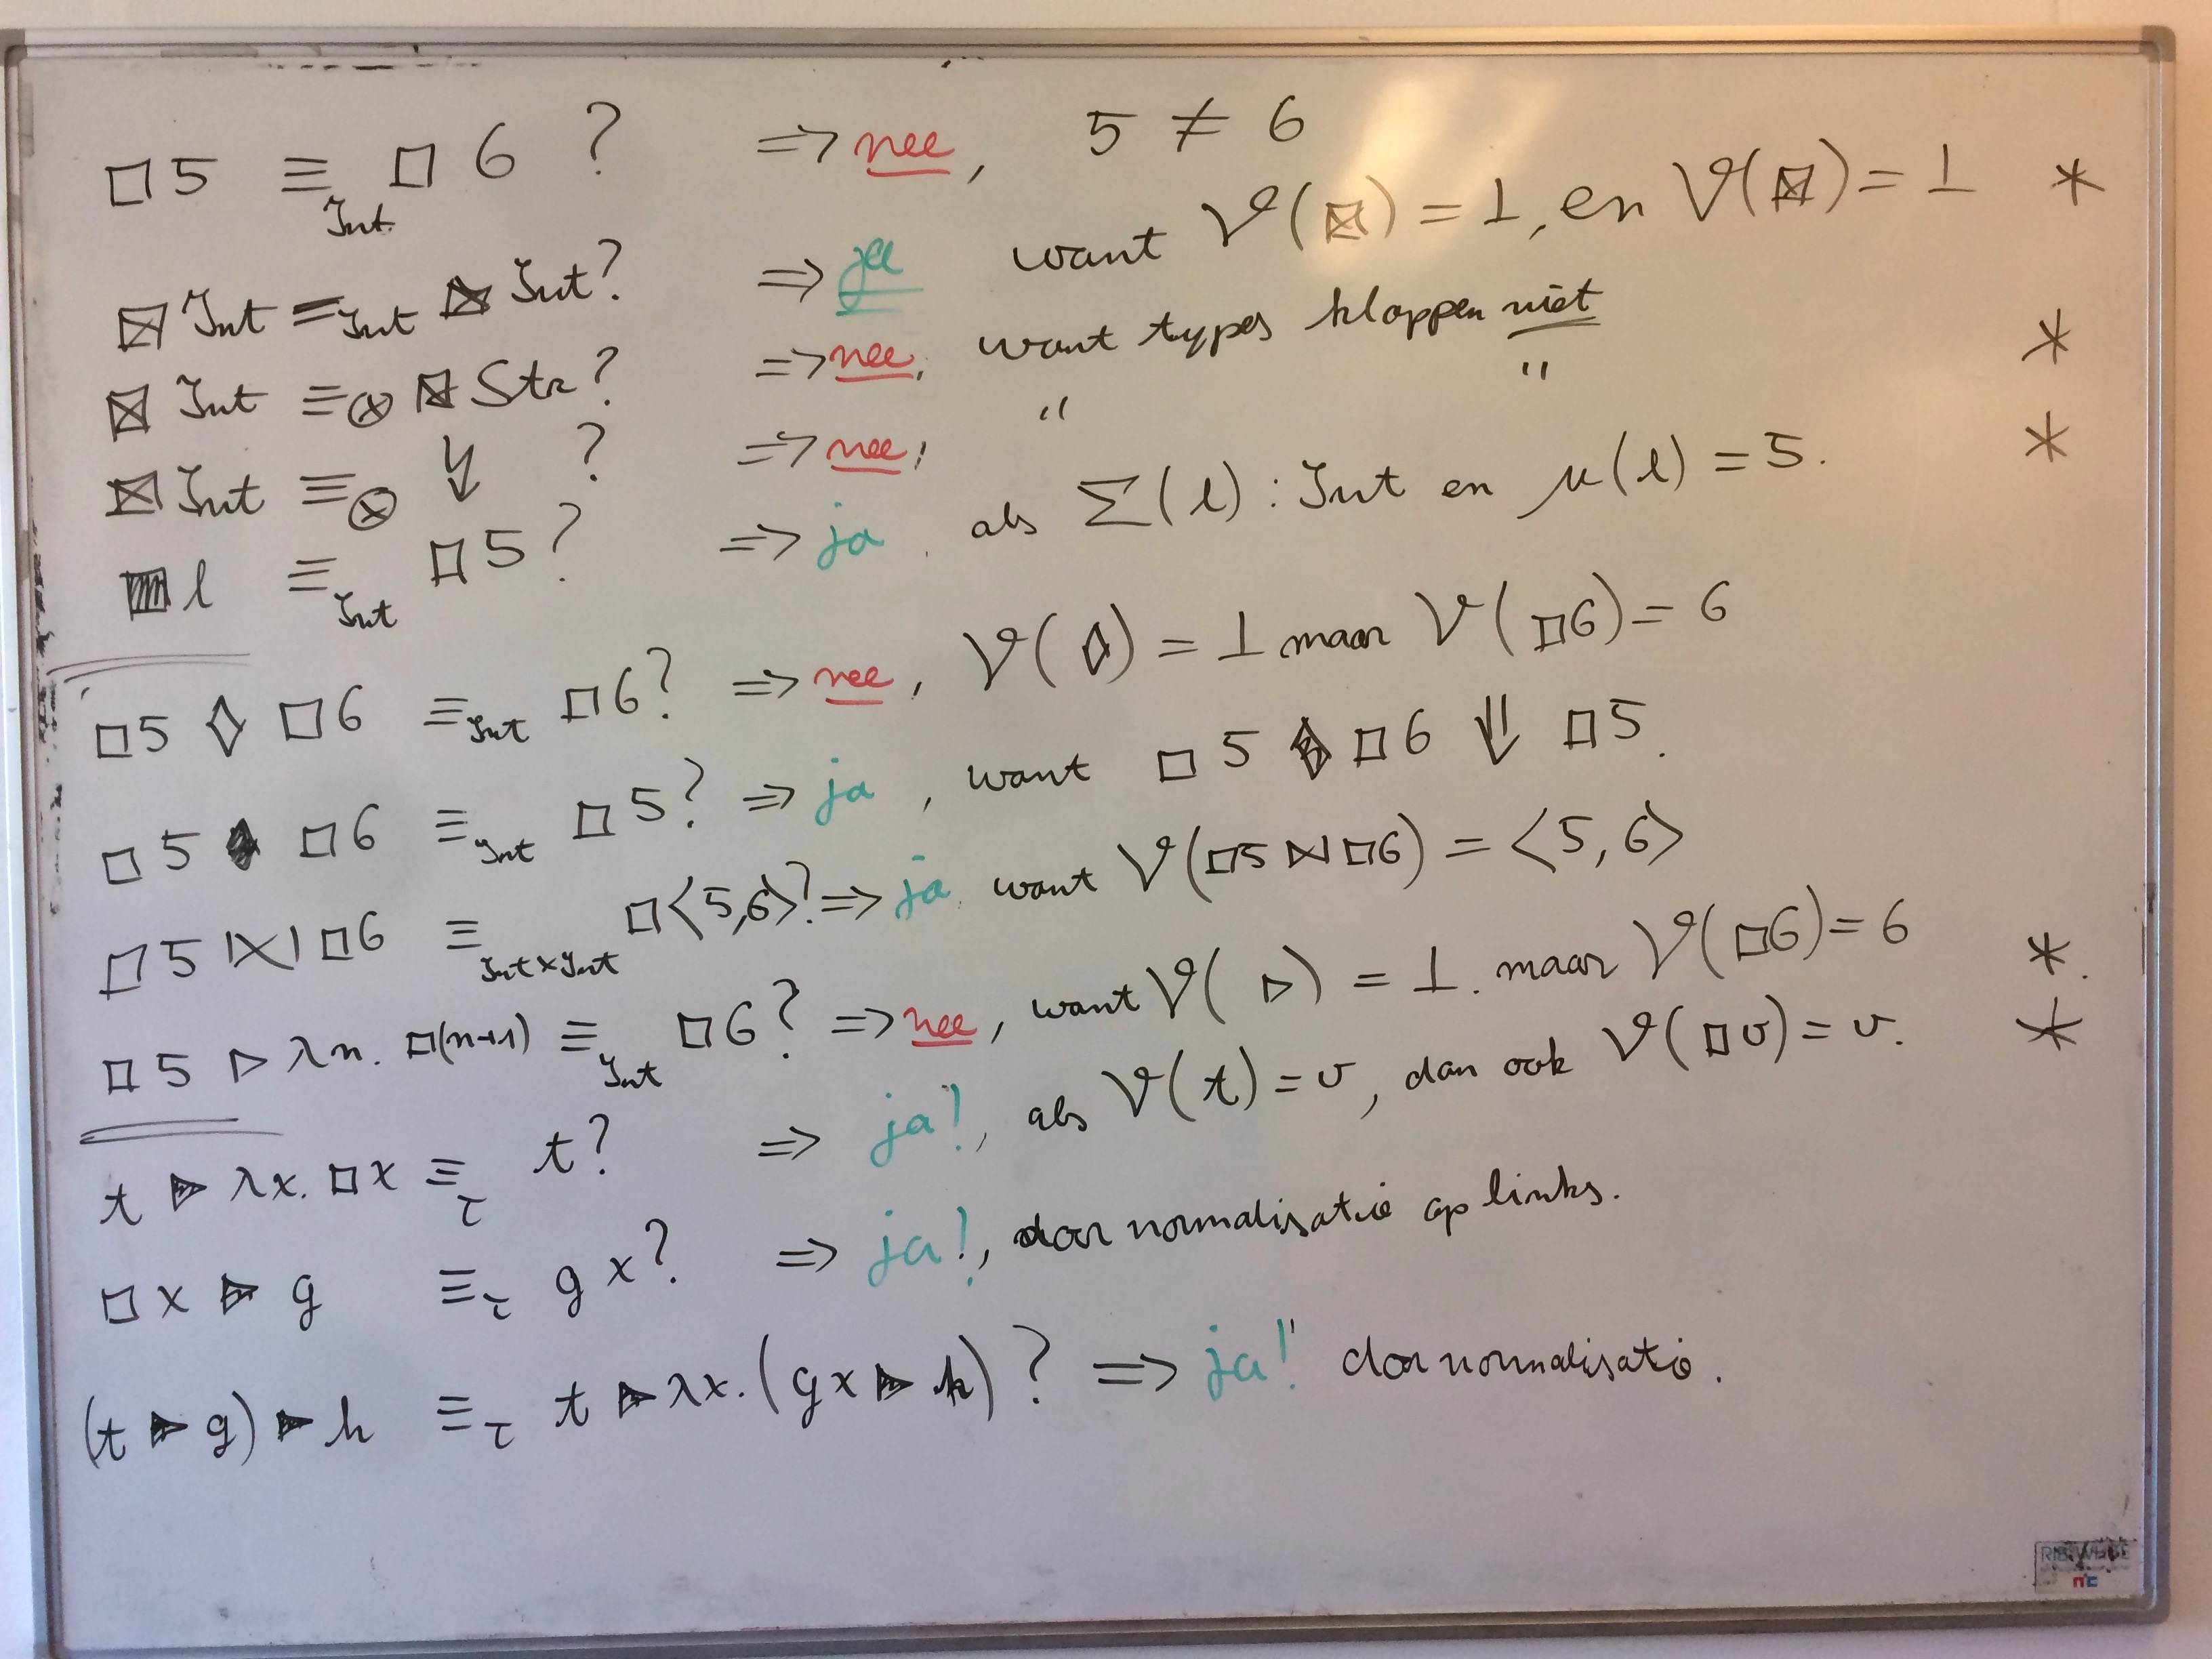 □ 5 ≡_Int □ 6 ? ⇒ nee, 5 ≠ 6
⊠ Int ≡_Int ⊠ Int? ⇒ ja want 𝒱(⊠) = ⊥, en 𝒱(⊠) = ⊥ *
⊠ Int ≡_⊗ ⊠ Str? ⇒ nee, want types kloppen niet *
⊠ Int ≡_⊗ ↯ ? ⇒ nee, " " *
■ l ≡_Int □ 5? ⇒ ja, als Σ(l) : Int en μ(l) = 5.
□ 5 ◊ □ 6 ≡_Int □ 6? ⇒ nee, 𝒱(◊) = ⊥ maar 𝒱(□6) = 6
□ 5 ♦ □ 6 ≡_Int □ 5? ⇒ ja, want □ 5 ♦ □ 6 ⇓ □ 5.
□ 5 ⋈ □ 6 ≡_Int×Int □⟨5,6⟩? ⇒ ja, want 𝒱(□5 ⋈ □6) = ⟨5, 6⟩
□ 5 ▷ λn. □(n+1) ≡_Int □ 6? ⇒ nee, want 𝒱(▷) = ⊥. maar 𝒱(□6) = 6 *.
t ▶ λx. □ x ≡_τ t? ⇒ ja!, als 𝒱(t) = v, dan ook 𝒱(□ v) = v. *
□ x ▶ g ≡_τ g x? ⇒ ja!, door normalisatie op links.
(t ▶ g) ▶ h ≡_τ t ▶ λx. (g x ▶ h) ? ⇒ ja! door normalisatie.